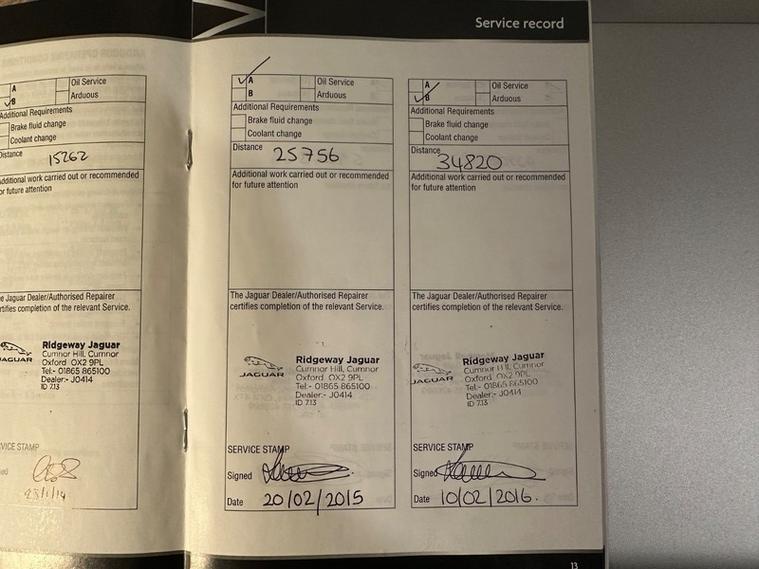 Service record
A
B
Oil Service
Arduous
Additional Requirements
Brake fluid change
Coolant change
Distance
15262
Additional work carried out or recommended
or future attention
The Jaguar Dealer/Authorised Repairer
certifies completion of the relevant Service.
JAGUAR
Ridgeway Jaguar
Cumnor Hill, Cumnor
Oxford OX2 9PL
Tel:- 01865 865100
Dealer:- J0414
ID 713
SERVICE STAMP
A
B
Oil Service
Arduous
Additional Requirements
Brake fluid change
Coolant change
Distance
25756
Additional work carried out or recommended
for future attention
The Jaguar Dealer/Authorised Repairer
certifies completion of the relevant Service.
JAGUAR
Ridgeway Jaguar
Cumnor Hill, Cumnor
Oxford OX2 9PL
Tel:- 01865 865100
Dealer:- J0414
ID 713
SERVICE STAMP
Signed
Date 20/02/2015
A
B
Oil Service
Arduous
Additional Requirements
Brake fluid change
Coolant change
Distance
34820
Additional work carried out or recommended
for future attention
The Jaguar Dealer/Authorised Repairer
certifies completion of the relevant Service.
JAGUAR
Ridgeway Jaguar
Cumnor Hill, Cumnor
Oxford OX2 9PL
Tel:- 01865 865100
Dealer:- J0414
ID 713
SERVICE STAMP
Signed
Date 10/02/2016.
13